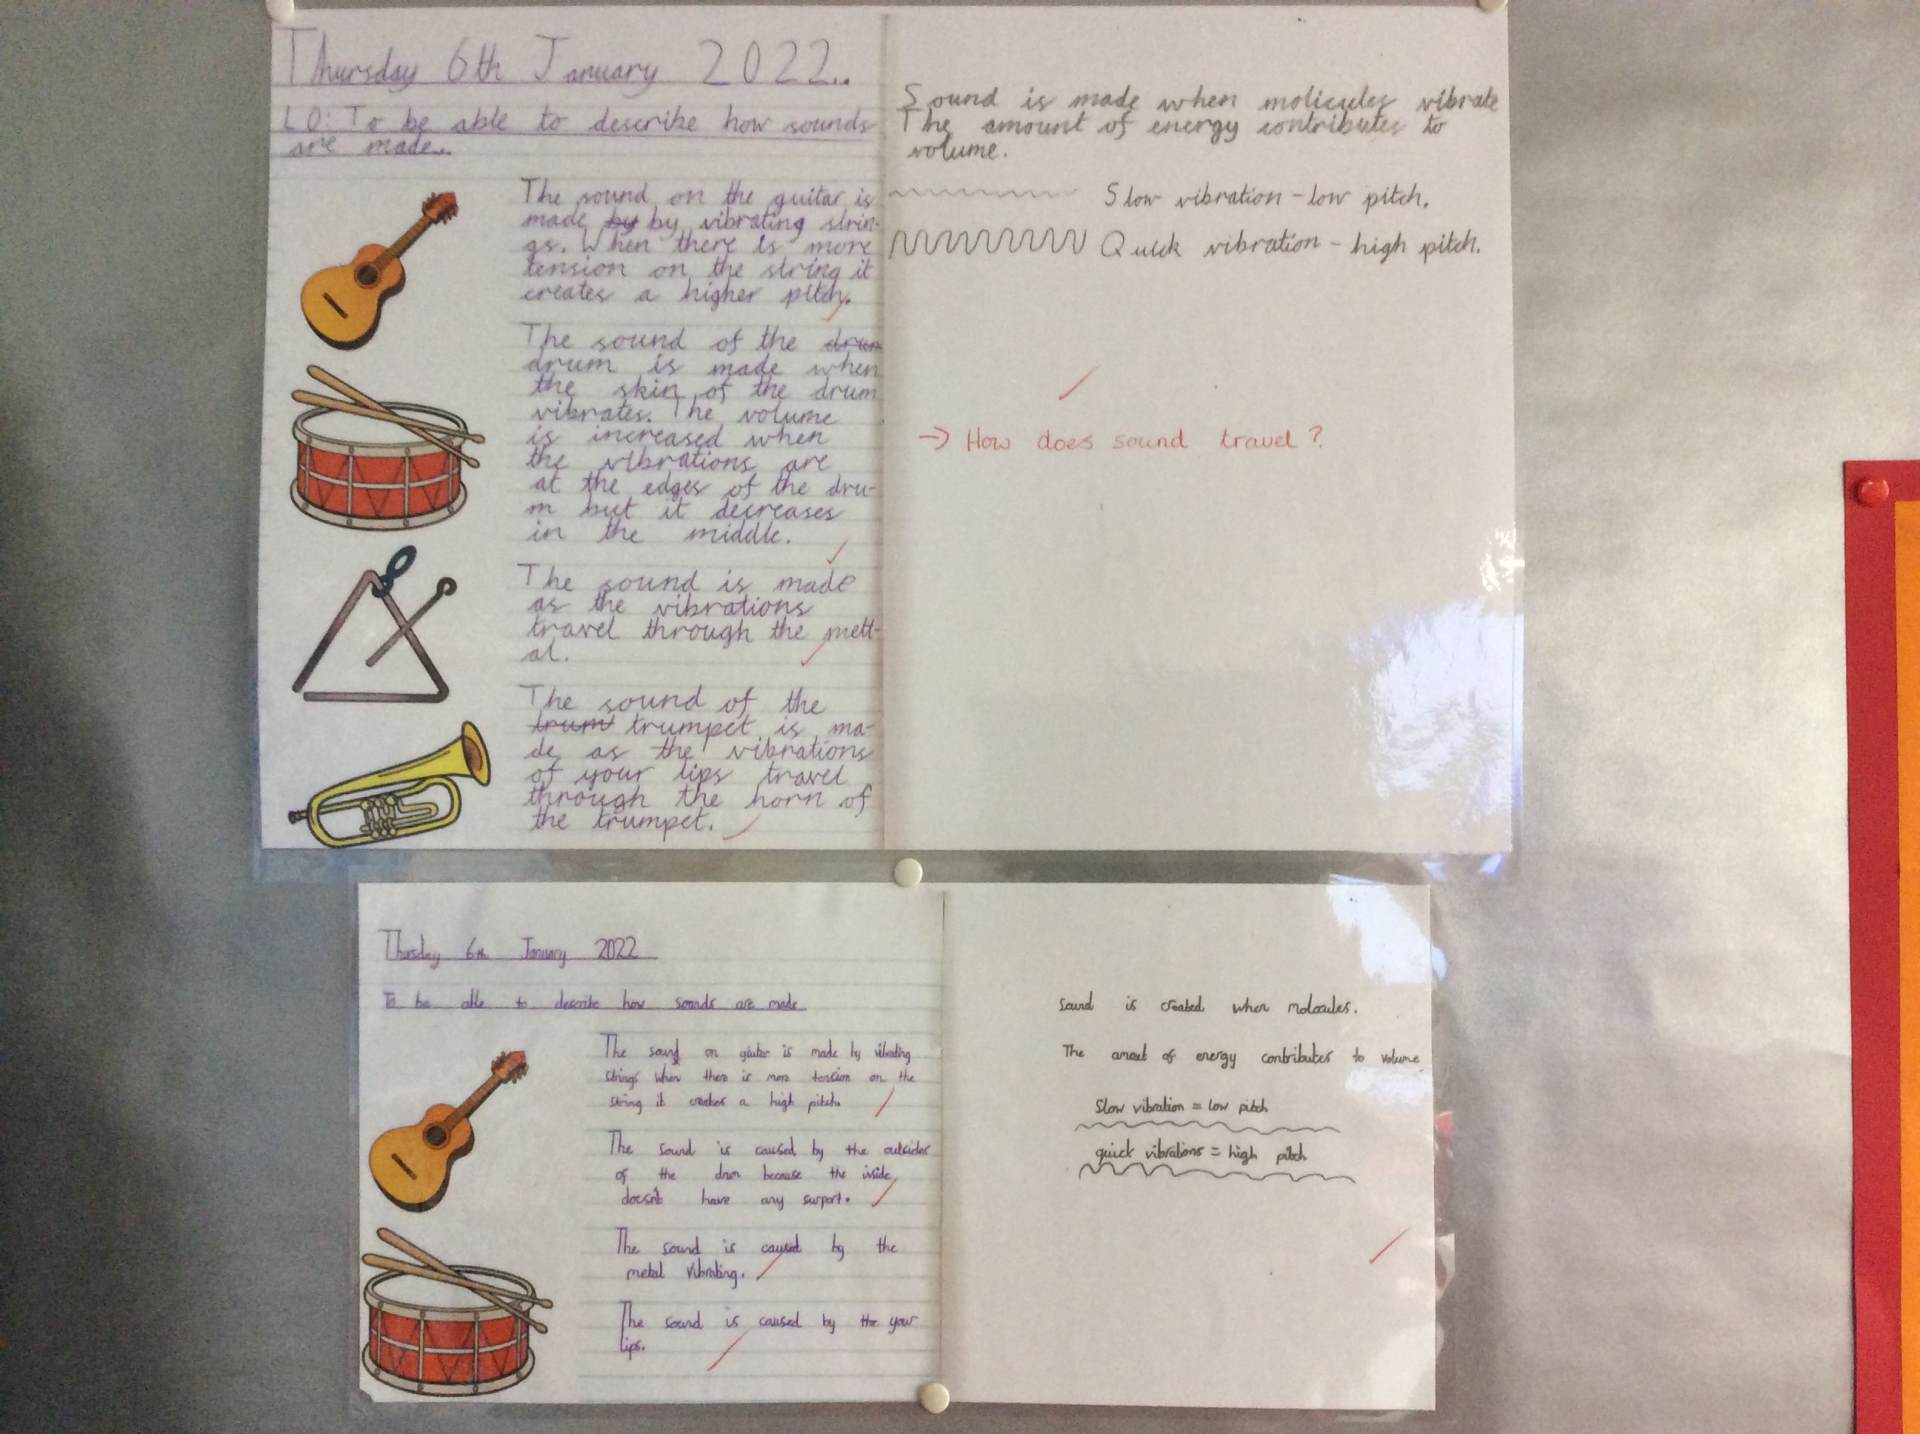 Thursday 6th January 2022..
LO: To be able to describe how sounds
are made..
The sound on the guitar is
made by by vibrating strin-
gs. When there is more
tension on the string it
creates a higher pitch.
The sound of the drum
drum is made when
the skin of the drum
vibrates. The volume
is increased when
the vibrations are
at the edges of the dru-
m but it decreases
in the middle.
The sound is made
as the vibrations
travel through the mett-
al.
The sound of the
trum trumpet is ma-
de as the vibrations
of your lips travel
through the horn of
the trumpet.
Sound is made when molicules vibrate
The amount of energy contributes to
volume.
Slow vibration - low pitch.
Quick vibration - high pitch.
→ How does sound travel?
Thursday 6th January 2022
To be able to describe how sounds are made
The sound on giutar is made by vibrating
strings when there is more tension on the
string it creates a high pitch.
The sound is caused by the outsides
of the drum because the inside
doesn't have any surport.
The sound is caused by the
metal vibrating.
The sound is caused by the your
lips.
Sound is created when molocules.
The amout of energy contributes to volume
Slow vibration = low pitch
quick vibrations = high pitch